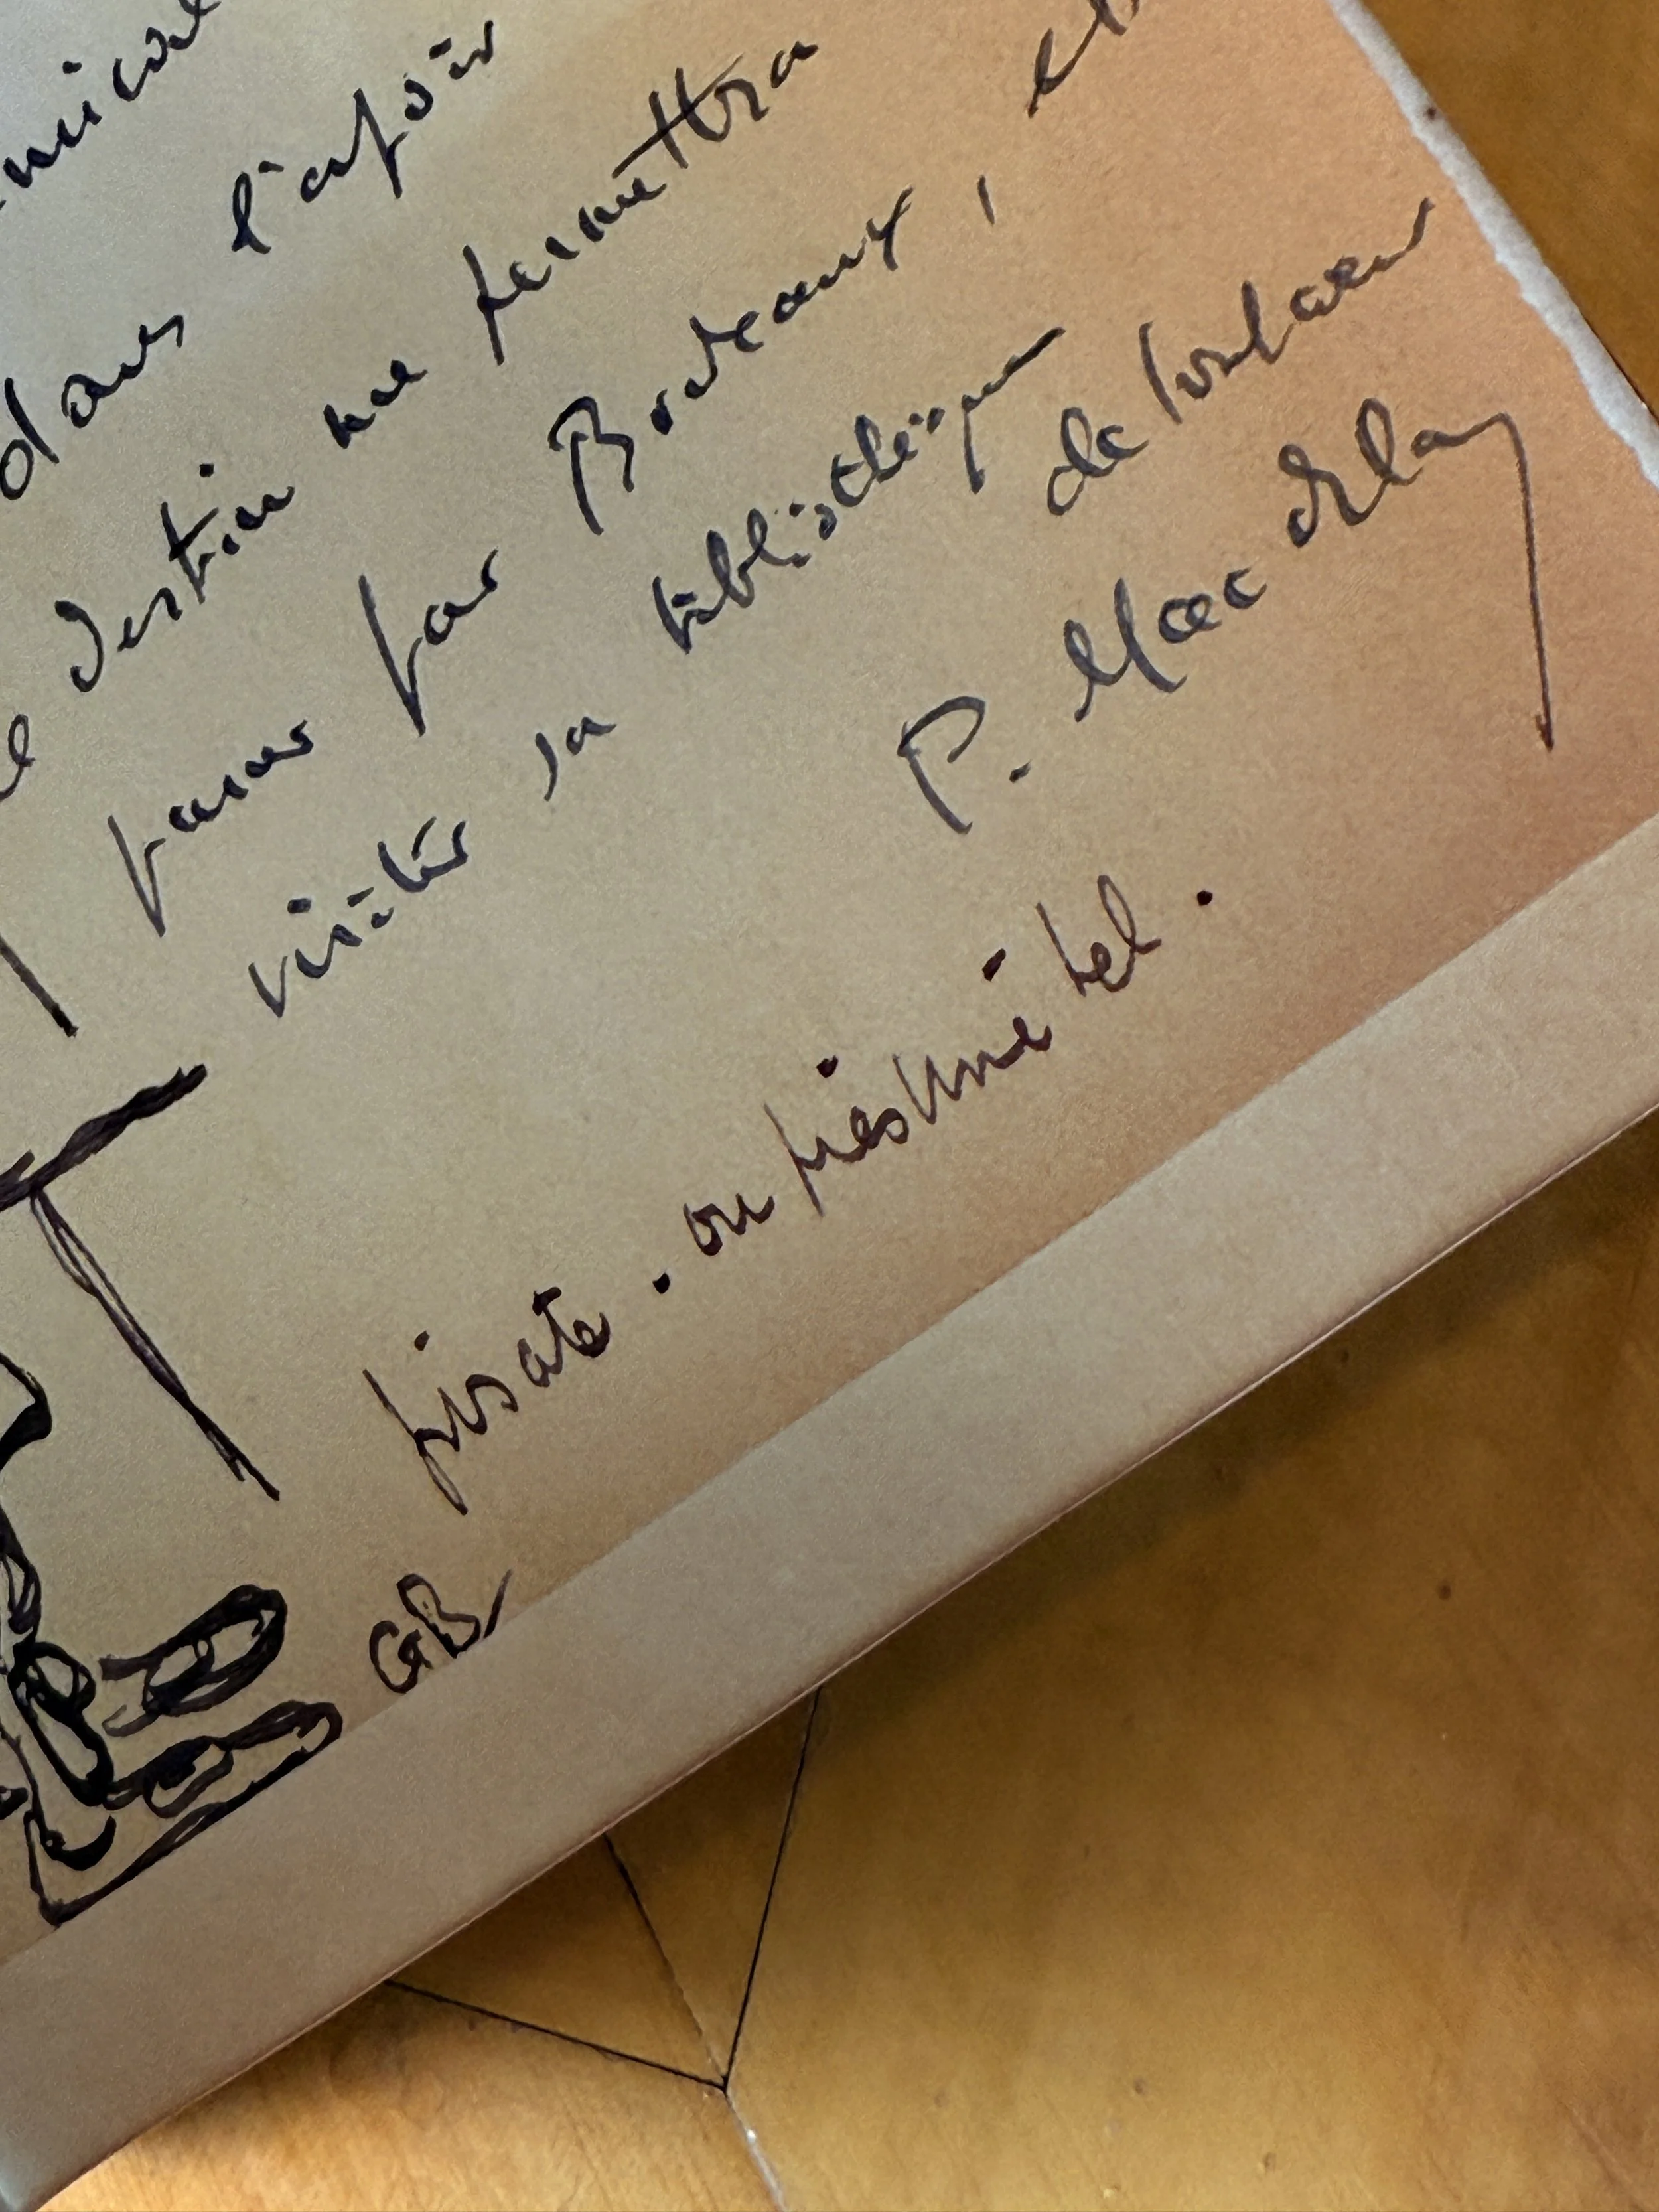 dans l'espoir
destin me permettra
passer par Bordeaux, et
visiter sa bibliothèque
de tout cœur
P. Mac Orlan
pirate. ou présumé tel.
GB